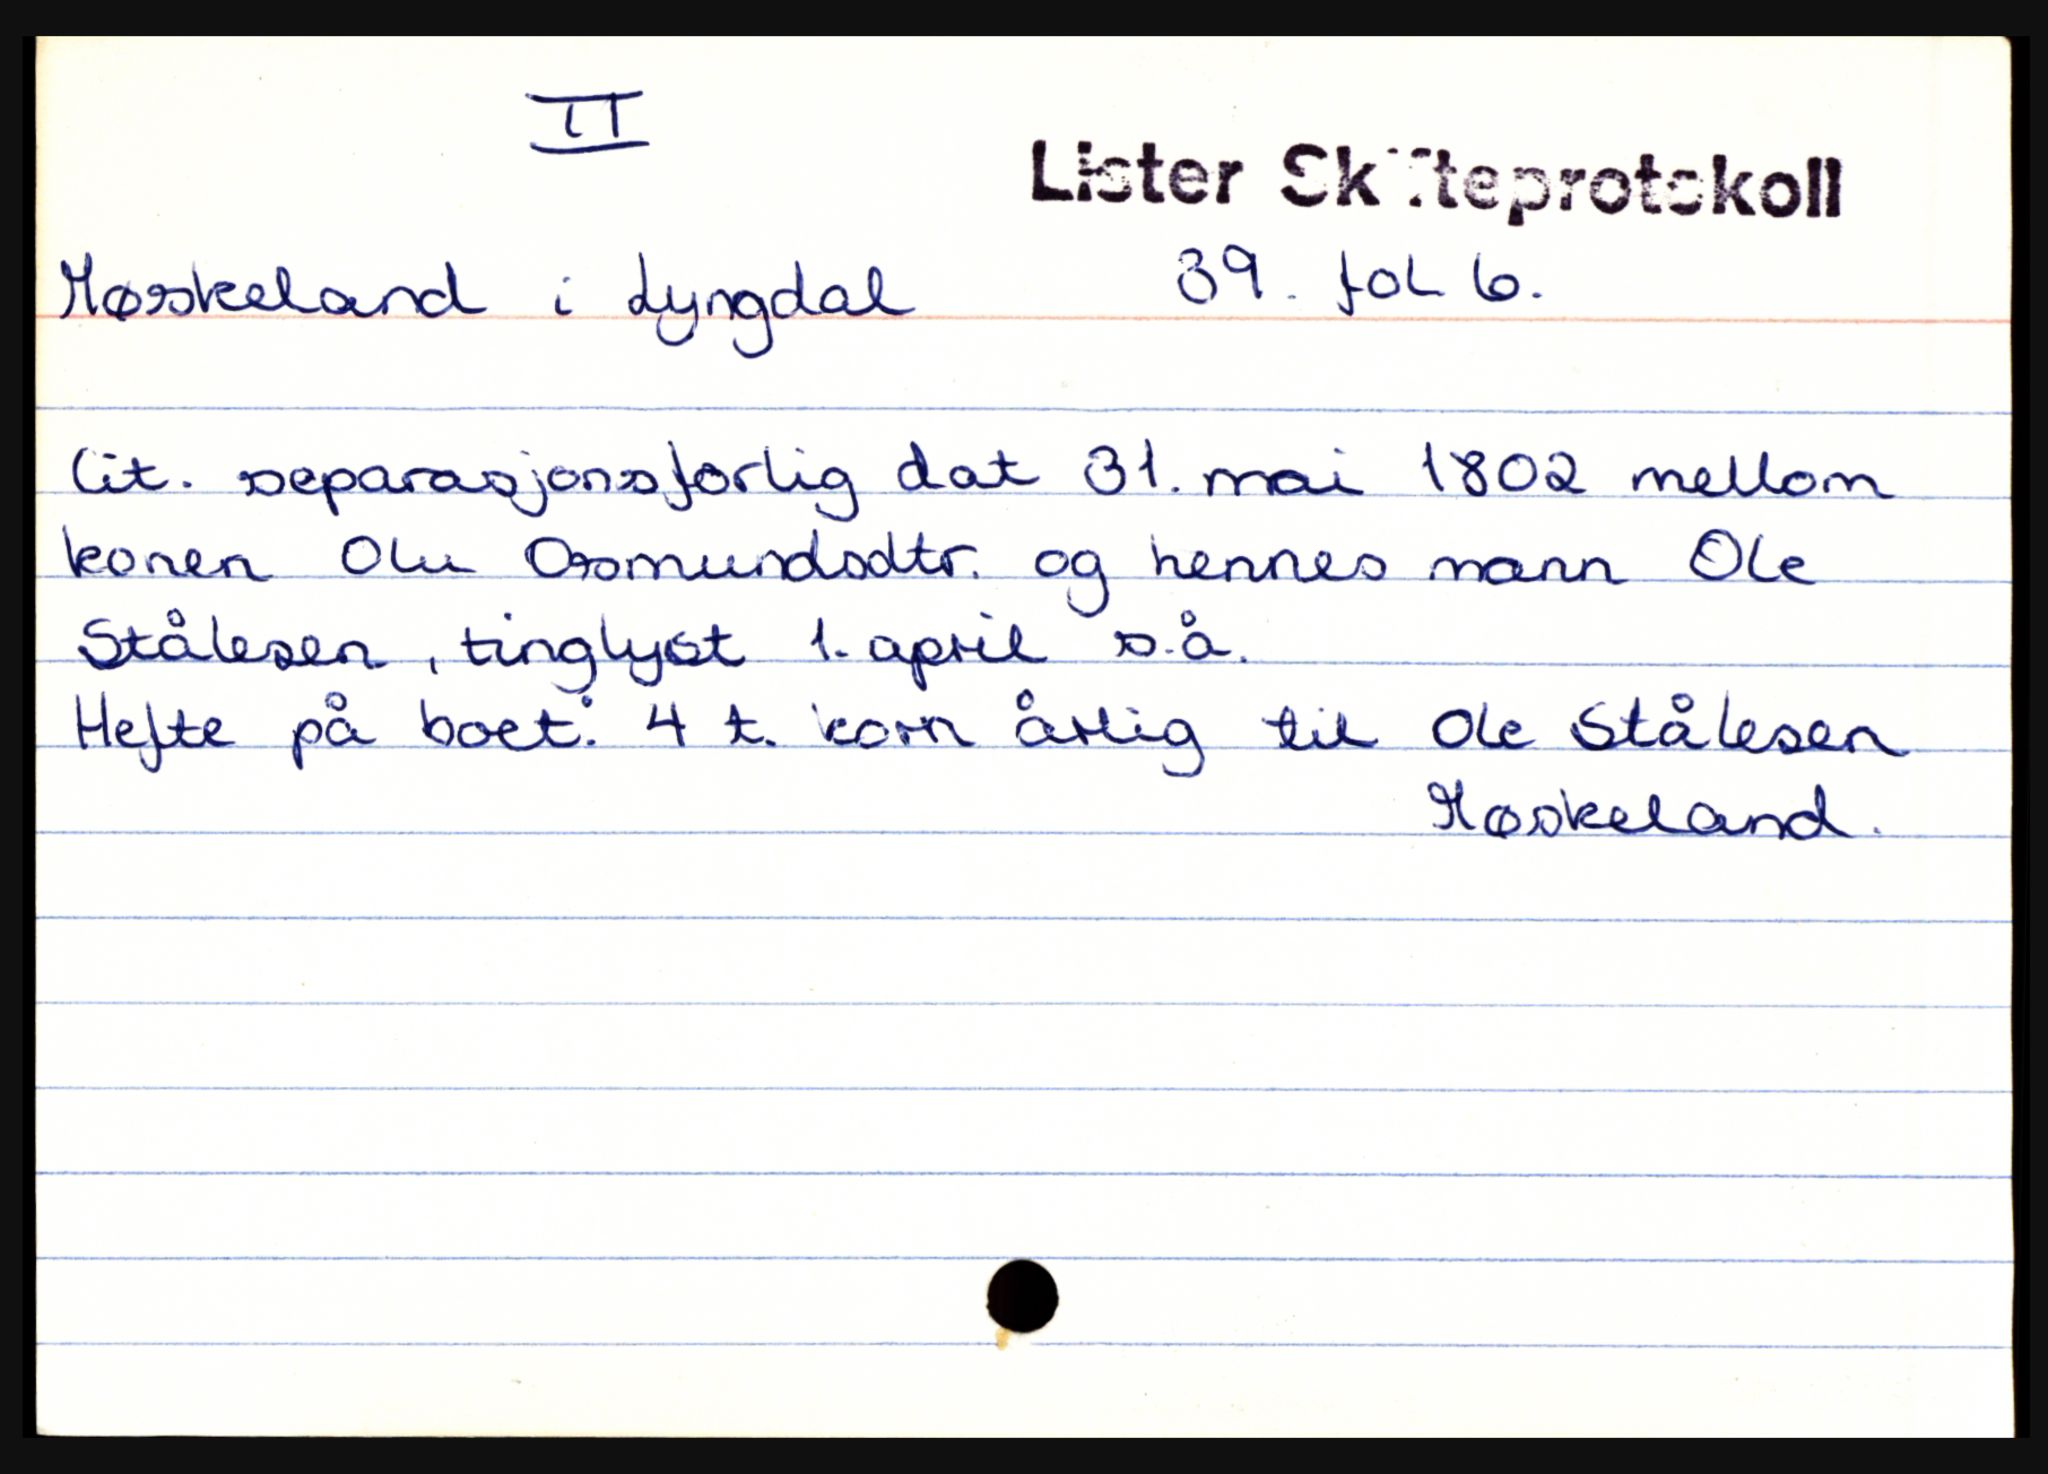 II
Lister Skifteprotokoll
Høskeland i Lyngdal 39. fol 6.
Cit. separasjonsforlig dat 31. mai 1802 mellom
konen Olu Osmundsdtr. og hennes mann Ole
Stålesen, tinglyst 1. april s.å.
Hefte på boet: 4 t. korn årlig til Ole Stålesen
Høskeland.